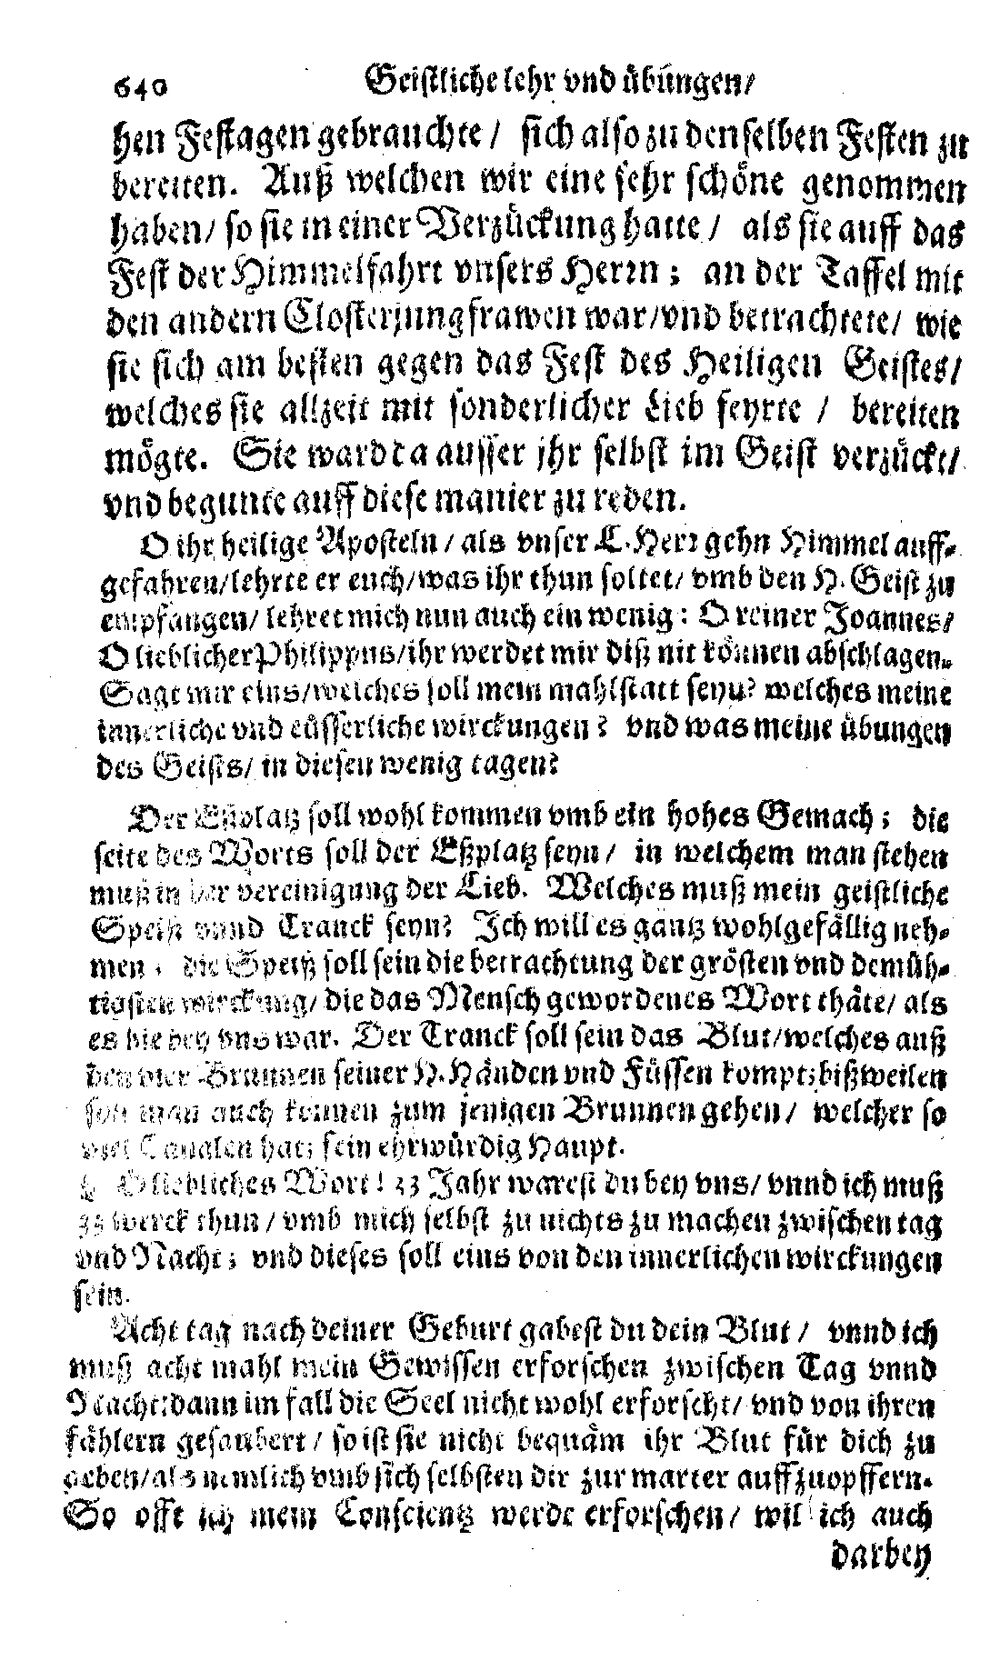 640 Geistliche lehr vnd übungen/
hen Festagen gebrauchte / sich also zu denselben Festen zu
bereiten. Auß welchen wir eine sehr schöne genommen
haben/ so sie in einer Verzückung hatte / als sie auff das
Fest der Himmelfahrt vnsers Herrn; an der Taffel mit
den andern Closterjungfrawen war/vnd betrachtete/ wie
sie sich am besten gegen das Fest des Heiligen Geistes/
welches sie allzeit mit sonderlicher Lieb feyrte / bereiten
mögte. Sie ward da ausser jhr selbst im Geist verzückt/
vnd begunte auff diese manier zu reden.
O ihr heilige Aposteln / als vnser L. Herr gehn Himmel auff-
gefahren/lehrte er euch/was ihr thun soltet/ vmb den H. Geist zu
empfangen/ lehret mich nun auch ein wenig: O reiner Joannes/
O lieblicher Philippus/ihr werdet mir diß nit können abschlagen.
Sagt mir eins/welches soll mein mahlstatt seyn? welches meine
innerliche vnd eüsserliche wirckungen? vnd was meine übungen
des Geists/ in diesen wenig tagen?
Der Eßplatz soll wohl kommen vmb ein hohes Gemach; die
seite des Worts soll der Eßplatz seyn/ in welchem man stehen
muß in der vereinigung der Lieb. Welches muß mein geistliche
Speiß vnnd Tranck seyn? Ich will es gantz wohlgefällig neh-
men; die Speiß soll sein die betrachtung der grösten vnd demüh-
tigsten wirckung/ die das Mensch gewordenes Wort thäte/ als
es hie bey vns war. Der Tranck soll sein das Blut/welches auß
den vier Brunnen seiner H. Händen vnd Füssen kompt; bißweilen
soll man auch können zum jenigen Brunnen gehen/ welcher so
viel Canalen hat; sein ehrwürdig Haupt.
O liebliches Wort! 33 Jahr warest du bey vns/ vnnd ich muß
33 werck thun / vmb mich selbst zu nichts zu machen zwischen tag
vnd Nacht; vnd dieses soll eins von den innerlichen wirckungen
sein.
Acht tag nach deiner Geburt gabest du dein Blut / vnnd ich
muß acht mahl mein Gewissen erforschen zwischen Tag vnnd
Nacht: dann im fall die Seel nicht wohl erforscht/ vnd von ihren
fählern gesaubert / so ist sie nicht bequäm ihr Blut für dich zu
geben/als nemlich vmb sich selbsten dir zur marter auffzuopffern.
So offt ich mein Conscientz werde erforschen/ will ich auch
darbey